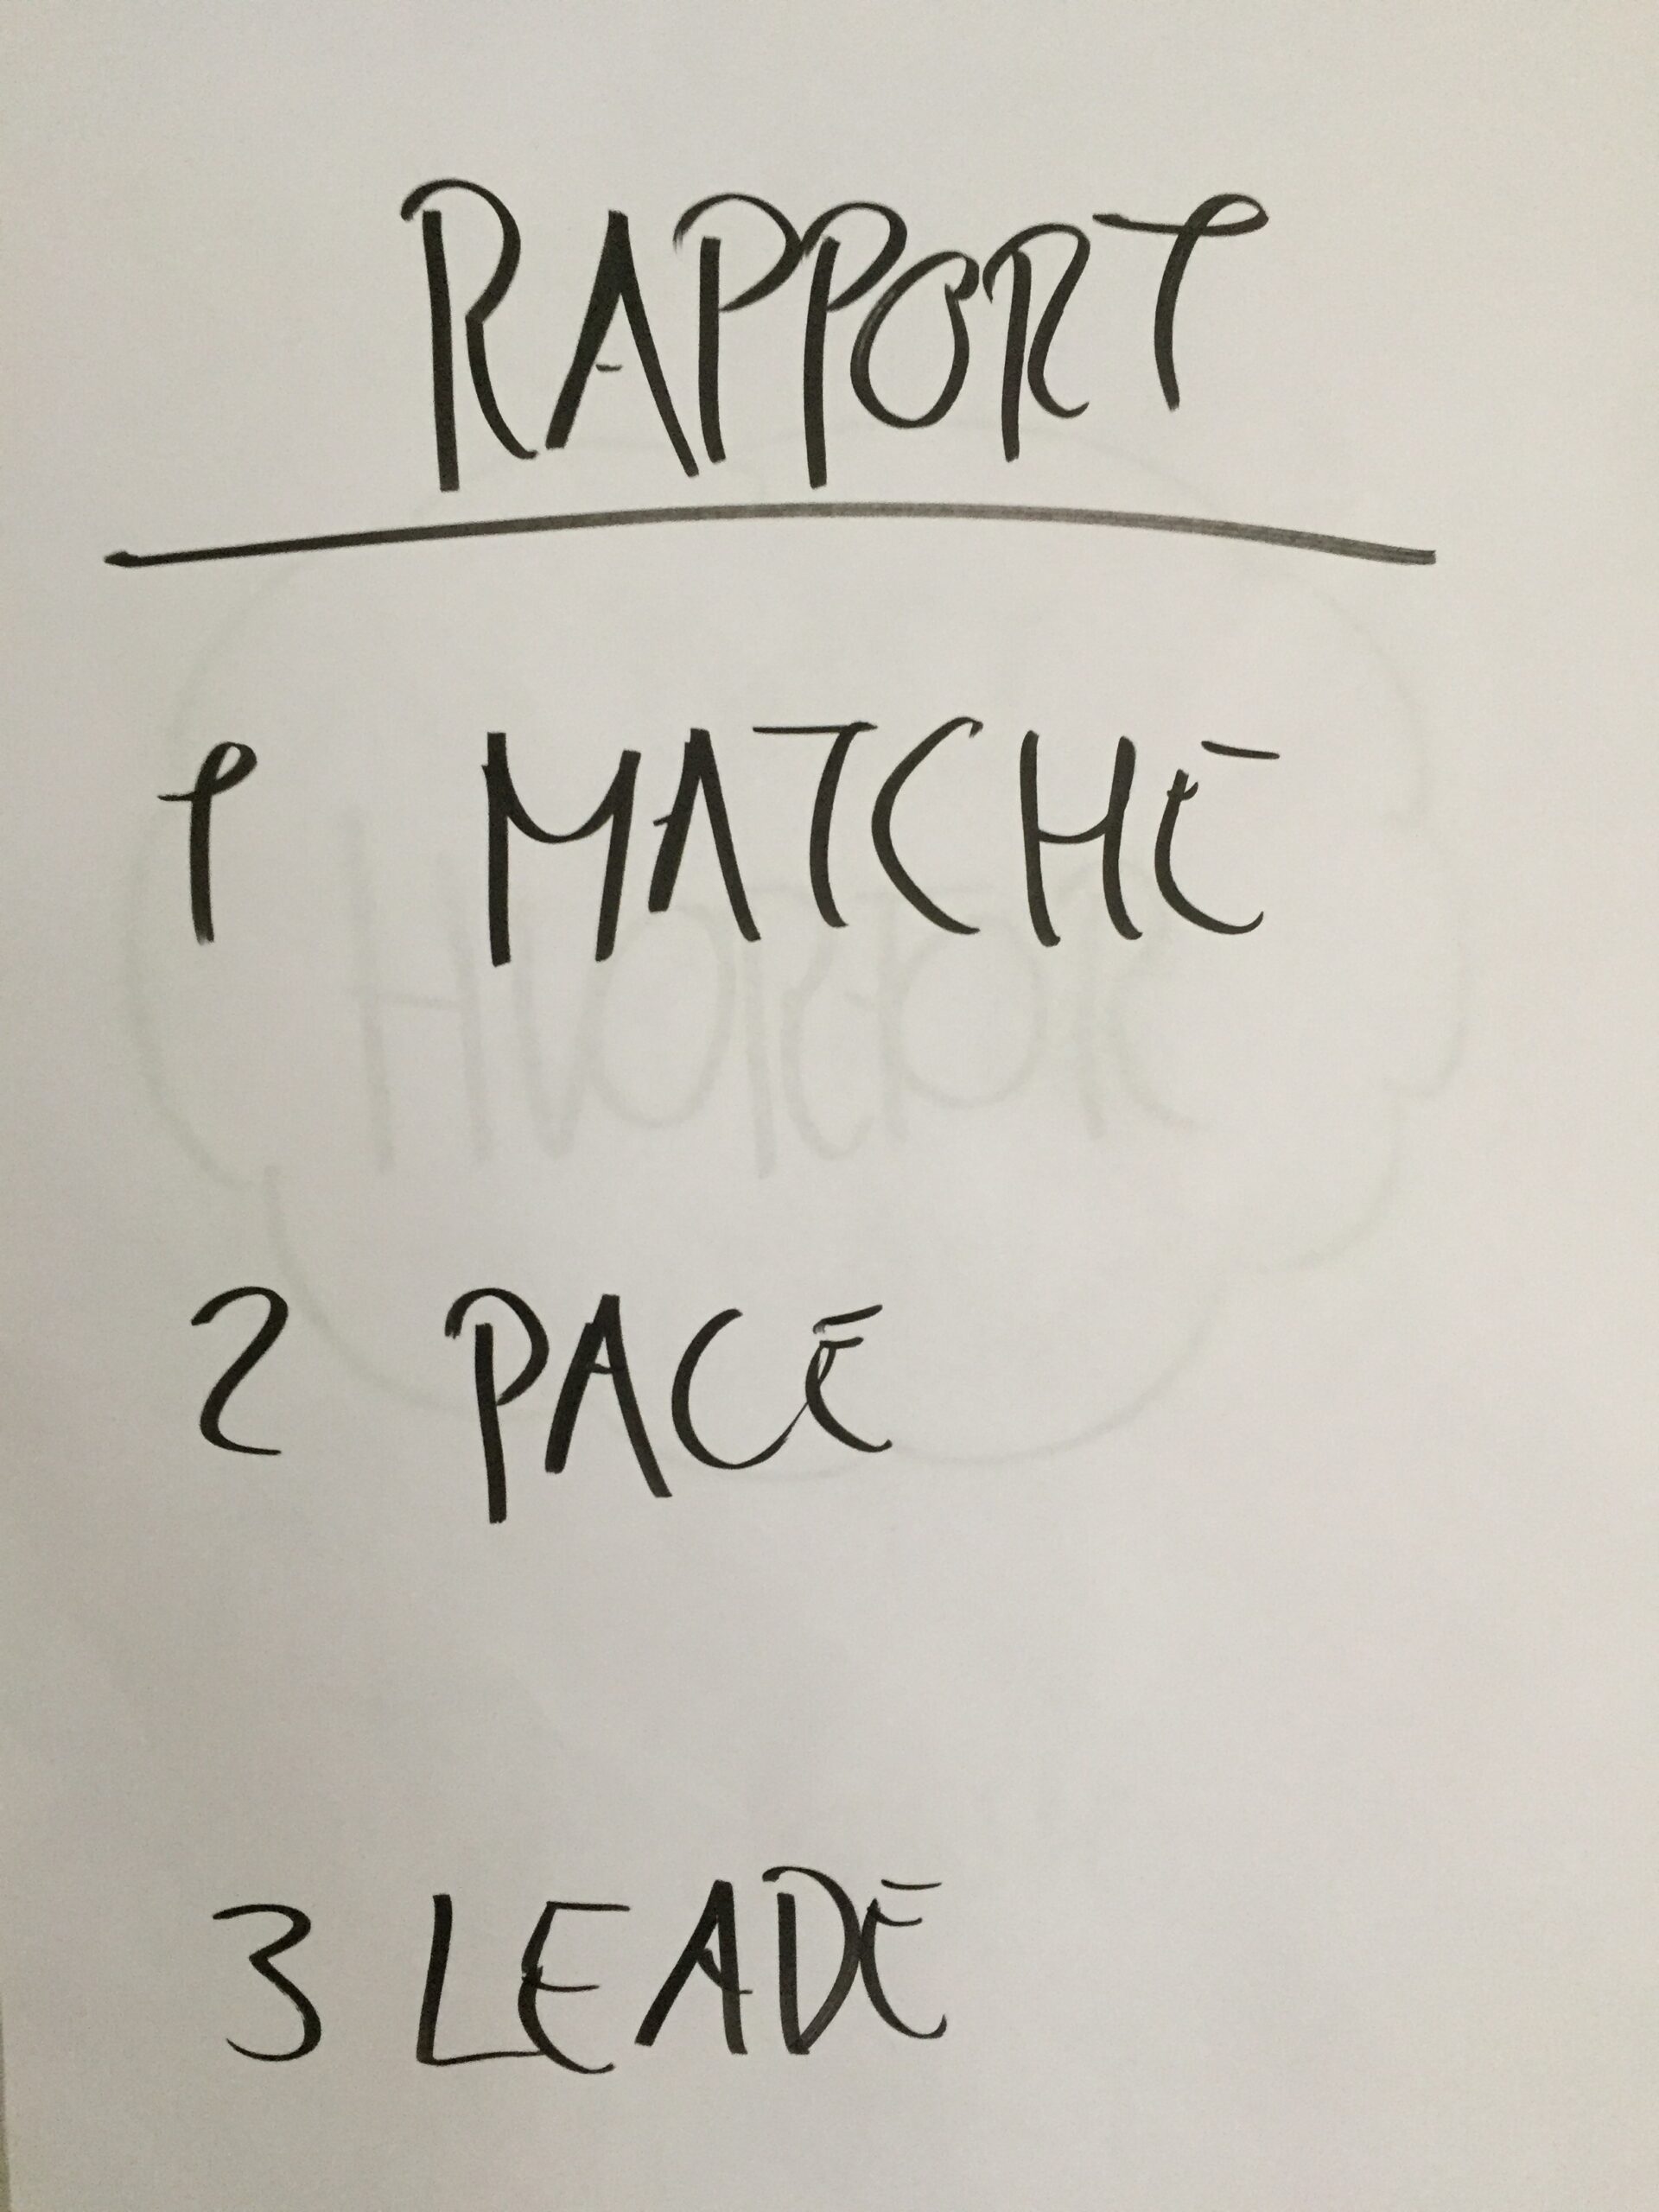 RAPPORT
1 MATCHE
HVORFOR
2 PACE
3 LEADE